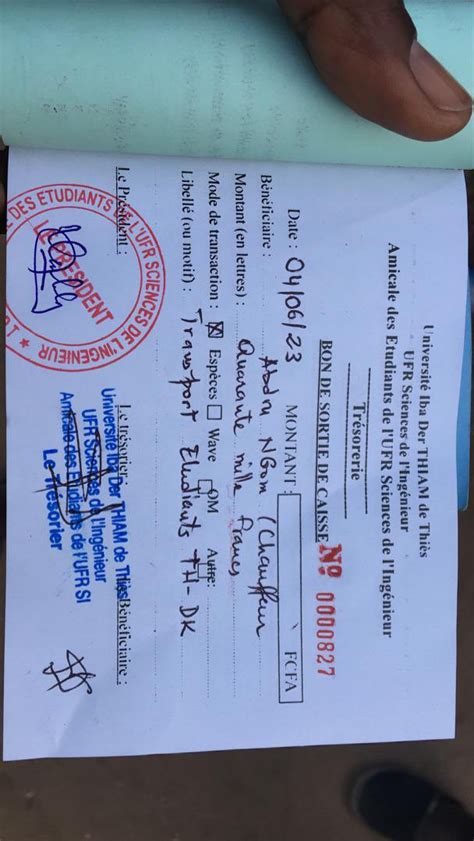 Université Iba Der THIAM de Thiès
UFR Sciences de l'Ingénieur
Amicale des Etudiants de l'UFR Sciences de l'Ingénieur
Trésorerie
BON DE SORTIE DE CAISSE Nº 0000827
Date : 04/06/23 MONTANT : FCFA
Bénéficiaire : Abda NGom (Chauffeur
Montant (en lettres) : Quarante mille francs
Mode de transaction : ☒ Espèces ☐ Wave ☐ OM Autre:
Libellé (ou motif) : Transport Etudiants TH-DK
Le Président : Le trésorier Bénéficiaire :
DES ETUDIANTS DE L'UFR SCIENCES DE L'INGÉNIEUR
LE PRESIDENT
Université Iba Der THIAM de Thiès
UFR Sciences de l'Ingénieur
Amicale des Etudiants de l'UFR SI
Le Trésorier